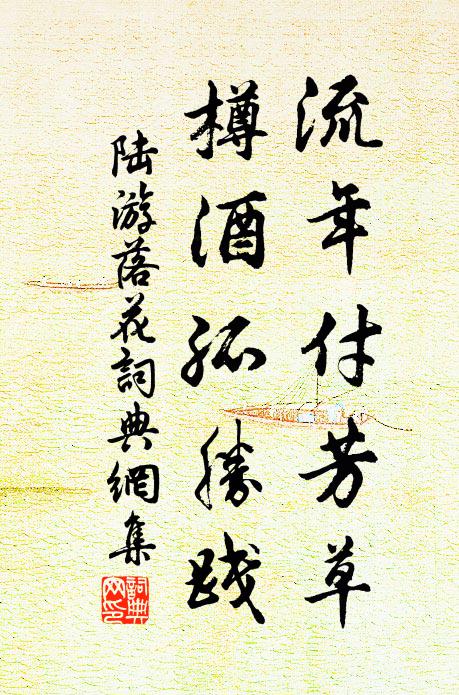 流年付芳草
樽酒孤勝踐
陆游落花詞典網集
詞典
网印